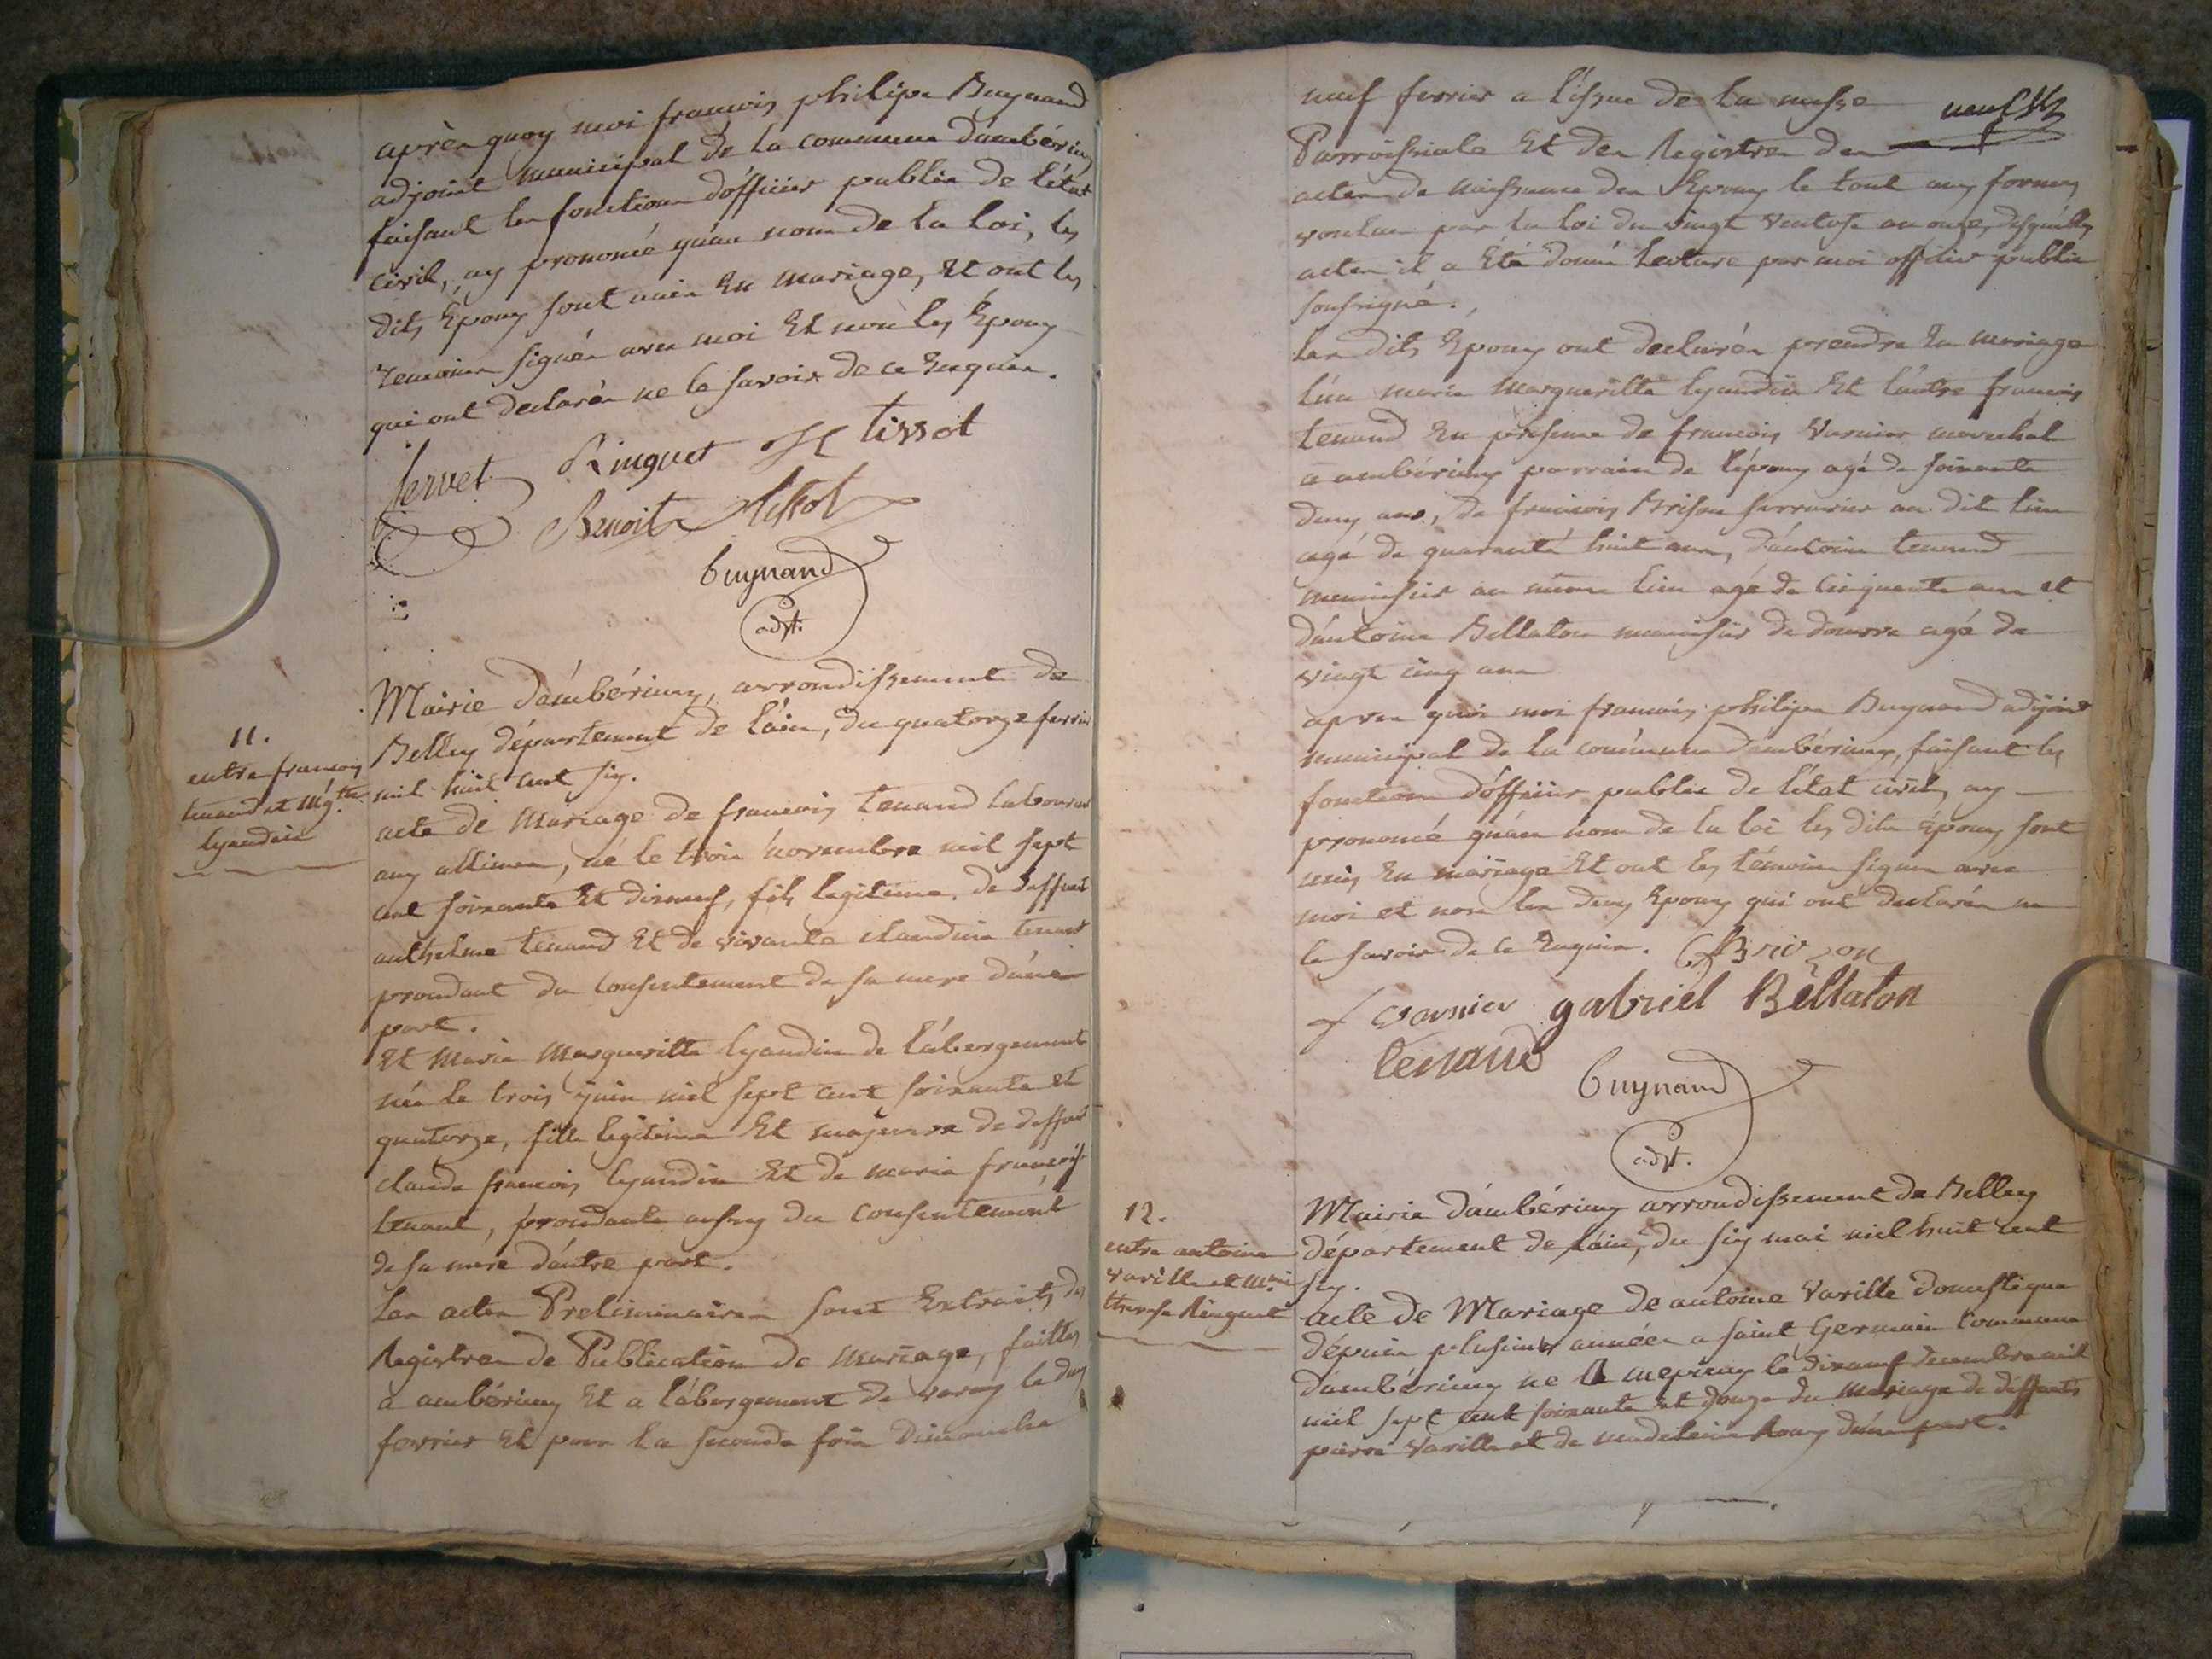 après quoy moi francois philipe Buynand
adjoint municipal de la commune d'ambérieux
faisant les fonctions d'officier public de l'état
civil, ay prononcé qu'au nom de la loi, les
dits Epoux sont unis En mariage, Et ont les
temoins signés avec moi Et non les Epoux
qui ont declarés ne le savoir de ce Enquis.
fervet Ringuet tissot
Benoit tissot
buynand
adjt.
11.
entre francois
tenand et Mgtte
lyaudin
Mairie d'ambérieux, arrondissement de
Belley département de l'ain, du quatorze fevrier
mil huit cent six.
acte de Mariage de francois tenand laboureur
aux allimes, né le trois novembre mil sept
cent soixante Et dixneuf, fils legitime de deffunt
anthelme tenand Et de vivante claudine tenand
procedant du consentement de sa mere d'une
part.
Et Marie Margueritte lyaudin de l'abergement
née le trois juin mil sept cent soixante et
quatorze, fille legitime Et majeure de deffunt
claude francois lyaudin Et de marie françoise
tenant, procedante aussy du consentement
de sa mere d'autre part.
Les actes Preliminaires sont Extraits des
Registres de Publication de Mariage, faittes
a ambérieux Et a l'abergement de varey le deux
fevrier Et pour la seconde fois Dimanche
neuf
neuf fevrier a l'issue de la messe
Parroissiale Et des Registres des
actes de naissance des Epoux le tout aux formes
voulues par la loi du vingt ventose an onze, desquels
actes il a Eté donné lecture par moi officier public
soussigné.
Les dits Epoux ont declarés prendre En mariage
l'un marie Margueritte lyaudin Et l'autre francois
tenand En presence de francois Varnier marechal
a ambérieux parrain de l'époux agé de soixante
deux ans, de francois Brison serrurier au dit lieu
agé de quarante huit ans, d'antoine tenand
menuisier au même lieu agé de cinquante ans et
d'antoine Bellaton menuisier de douvre agé de
vingt cinq ans
apres quoi moi francois philipe Buynand adjoint
municipal de la commune d'ambérieux, faisant les
fonctions d'officier public de l'état civil, ay
prononcé qu'au nom de la loi les dits époux sont
unis En mariage Et ont les témoins signes avec
moi et non les deux Epoux qui ont declarés ne
le savoir de ce Enquis. Brizon
f varnier gabriel Bellaton
tenand
buynand
adjt.
12.
entre antoine
varille et Mrie
therese Ringuet
Mairie d'ambérieux arrondissement de Belley
département de l'ain, du six mai mil huit cent
six.
acte de Mariage de antoine Varille domestique
dépuis plusieurs années a saint Germain Commune
d'ambérieux né a le dixneuf decembre mil
mil sept cent soixante et douze du mariage de deffunts
pierre Varille et de madeleine Roux d'une part.